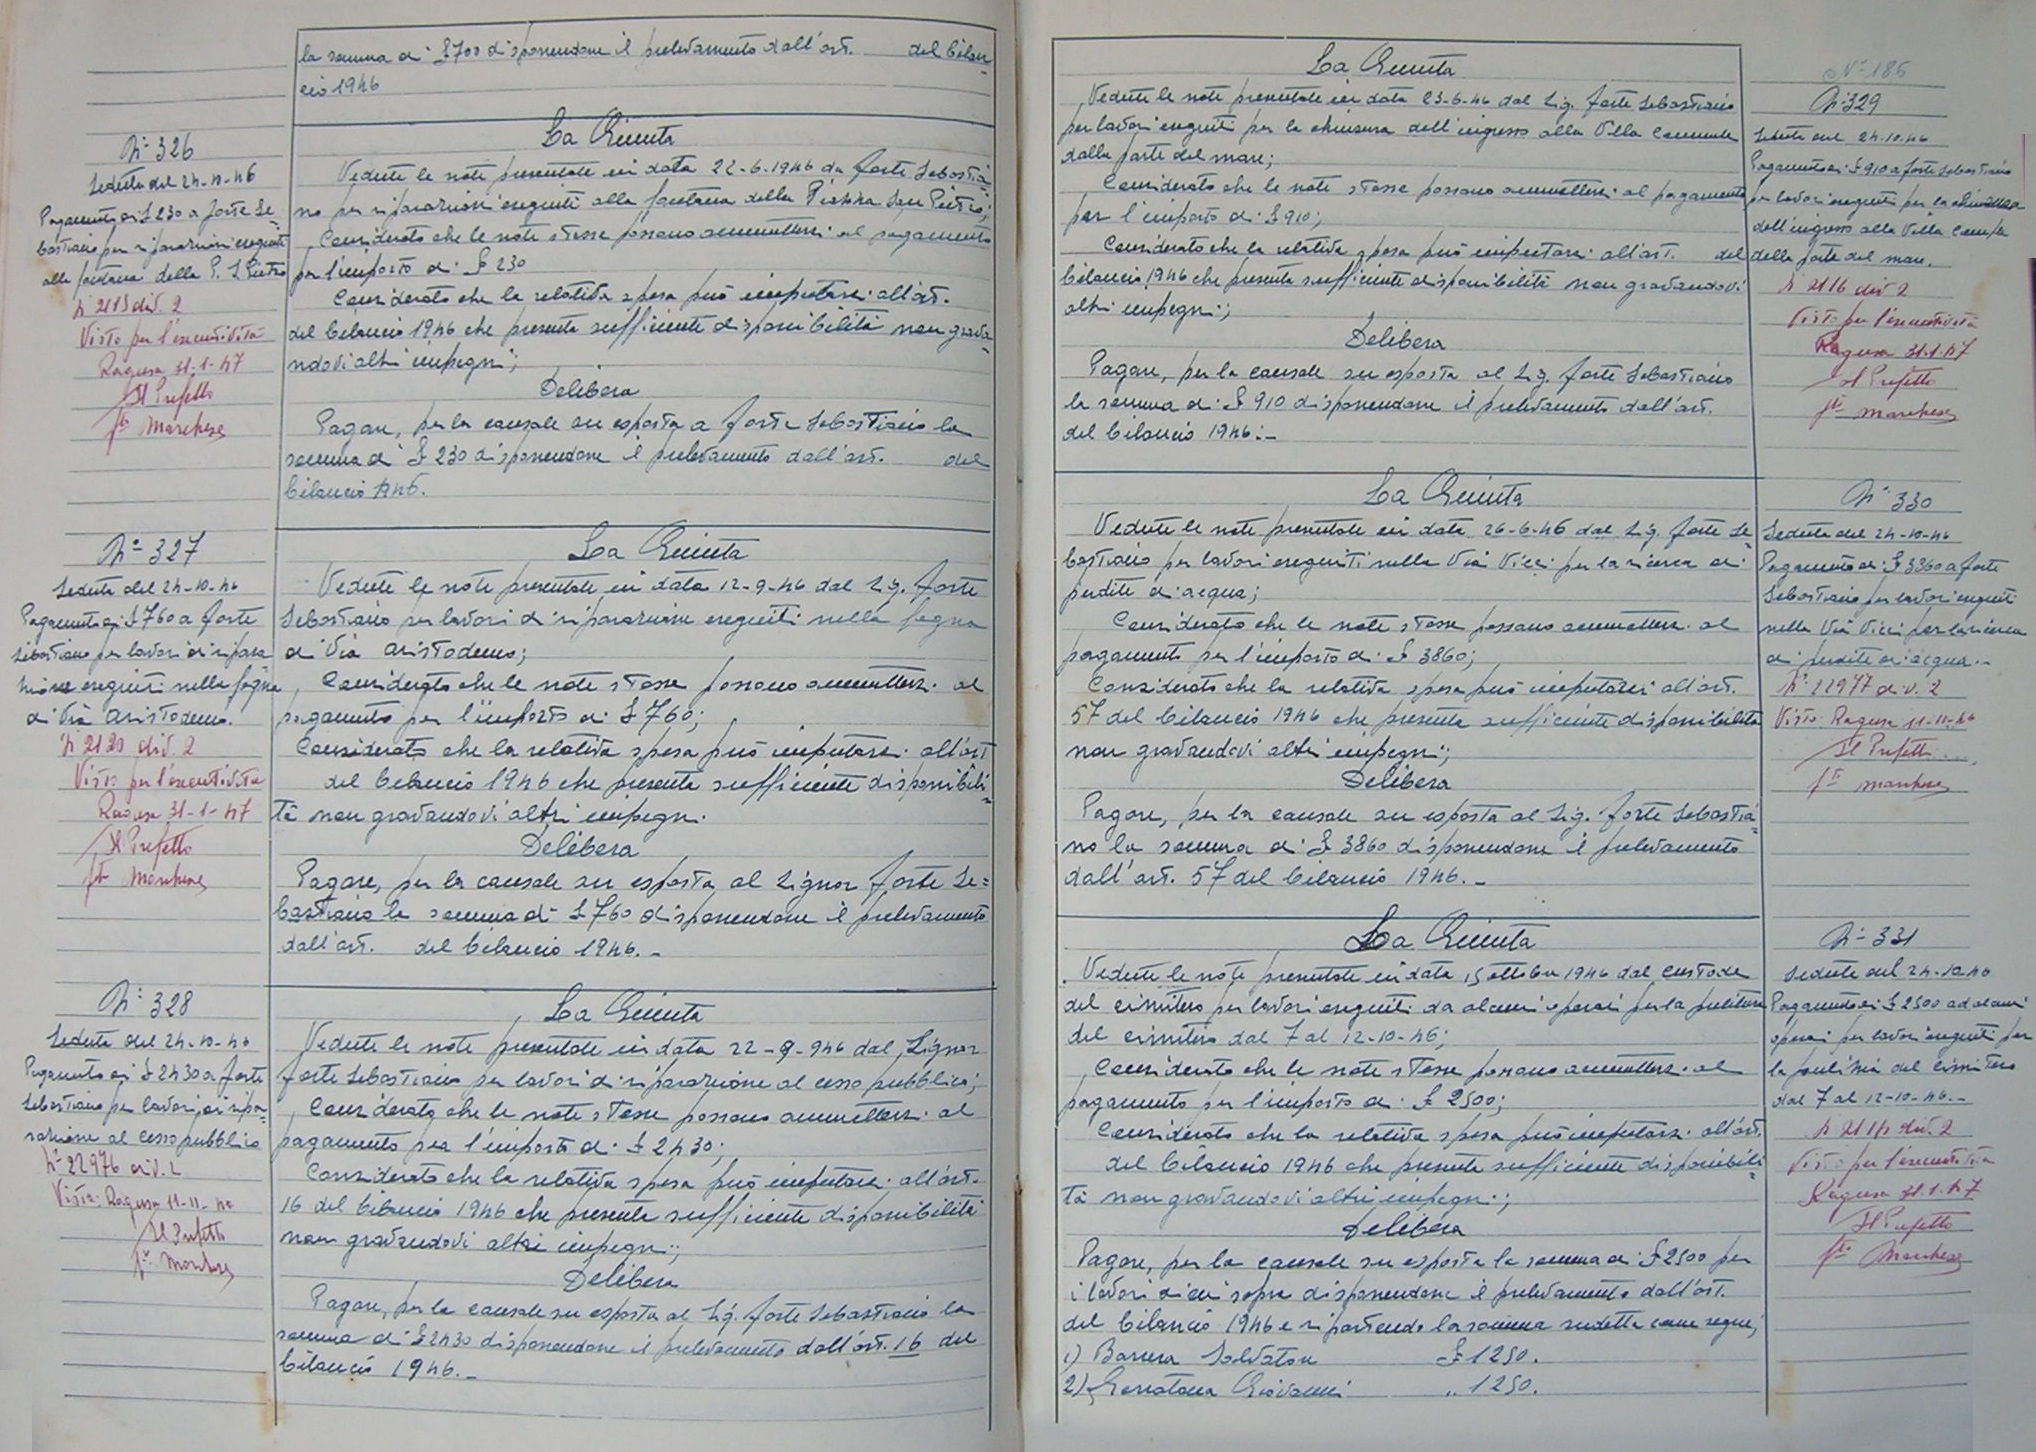 la somma di £ 700 disponendone il prelevamento dall'art. del bilan-
cio 1946
N° 326
Seduta del 24-10-46
Pagamento di £ 230 a Forte Se-
bastiano per riparazioni eseguite
alla fontana della P. S. Pietro
N 2113 div. 2
Visto per l'esecutività
Ragusa 31-1-47
Il Prefetto
fto Marchese
La Giunta
Vedute le note presentate in data 22-6-1946 da Forte Sebastia-
no per riparazioni eseguite alla fontana della Piazza San Pietro;
Considerato che le note stesse possano ammettersi al pagamento
per l'importo di £ 230
Considerato che la relativa spesa può imputarsi all'art.
del bilancio 1946 che presenta sufficiente disponibilità non grava-
ndovi altri impegni;
Delibera
Pagare, per la causale su esposta a Forte Sebastiano la
somma di £ 230 disponendone il prelevamento dall'art. del
bilancio 1946.
N° 327
Seduta del 24-10-46
Pagamento di £ 760 a Forte
Sebastiano per lavori di ripara
zione eseguiti nella fogna
di Via Aristodemo.
N 2120 div. 2
Visto per l'esecutività
Ragusa 31-1-47
Il Prefetto
fto Marchese
La Giunta
Vedute le note presentate in data 12-9-46 dal Sig. Forte
Sebastiano per lavori di riparazione eseguiti nella fogna
di Via Aristodemo;
Considerato che le note stesse possano ammettersi al
pagamento per l'importo di £ 760;
Considerato che la relativa spesa può imputarsi all'art
del bilancio 1946 che presenta sufficiente disponibili-
tà non gravandovi altri impegni.
Delibera
Pagare, per la causale su esposta, al Signor Forte Se=
bastiano la somma di £ 760 disponendone il prelevamento
dall'art. del bilancio 1946.-
N° 328
Seduta del 24-10-46
Pagamento di £ 2430 a Forte
Sebastiano per lavori di ripa-
razione al cesso pubblico
N° 22976 div. 2
Visto: Ragusa 11-11-46
Il Prefetto
fto Marchese
La Giunta
Vedute le note presentate in data 22-9-946 dal Signor
Forte Sebastiano per lavori di riparazione al cesso pubblico;
Considerato che le note stesse possano ammettersi al
pagamento per l'importo di £ 2430;
Considerato che la relativa spesa può imputarsi all'art.
16 del bilancio 1946 che presenta sufficiente disponibilità
non gravandovi altri impegni;
Delibera
Pagare, per la causale su esposta al Sig. Forte Sebastiano la
somma di £ 2430 disponendone il prelevamento dall'art. 16 del
bilancio 1946.-
La Giunta
Vedute le note presentate in data 23-6-46 dal Sig. Forte Sebastiano
per lavori eseguiti per la chiusura dell'ingresso alla Villa Comunale
dalla parte del mare;
Considerato che le note stesse possano ammettersi al pagamento
per l'importo di £ 910;
Considerato che la relativa spesa può imputarsi all'art. del
bilancio 1946 che presenta sufficiente disponibilità non gravandovi
altri impegni;
Delibera
Pagare, per la causale su esposta al Sig. Forte Sebastiano
la somma di £ 910 disponendone il prelevamento dall'art.
del bilancio 1946.-
N° 186
N° 329
Seduta del 24.10.46
Pagamento di £ 910 a Forte Sebastiano
per lavori eseguiti per la chiusura
dell'ingresso alla Villa Com.le
della parte del mare.
N 2116 div 2
Visto per l'esecutività
Ragusa 31.1.47
Il Prefetto
fto Marchese
La Giunta
Vedute le note presentate in data 26-6-46 dal Sig. Forte Se-
bastiano per lavori eseguiti nella Via Vicci per la ricerca di
perdite di acqua;
Considerato che le note stesse possano ammettersi al
pagamento per l'importo di £ 3860;
Considerato che la relativa spesa può imputarsi all'art.
57 del bilancio 1946 che presenta sufficiente disponibilità
non gravandovi altri impegni;
Delibera
Pagare, per la causale su esposta al Sig. Forte Sebastia-
no la somma di £ 3860 disponendone il prelevamento
dall'art. 57 del bilancio 1946.-
N° 330
Seduta del 24-10-46
Pagamento di £ 3860 a Forte
Sebastiano per lavori eseguiti
nella Via Vicci per la ricerca
di perdite di acqua.-
N° 22977 div. 2
Visto: Ragusa 11-11-46
Il Prefetto
fto Marchese
La Giunta
Vedute le note presentate in data 15 ottobre 1946 dal custode
del cimitero per lavori eseguiti da alcuni operai per la pulitura
del cimitero dal 7 al 12-10-46;
Considerato che le note stesse possano ammettersi al
pagamento per l'importo di £ 2500;
Considerato che la relativa spesa può imputarsi all'art.
del bilancio 1946 che presenta sufficiente disponibili-
tà non gravandovi altri impegni;
Delibera
Pagare, per la causale su esposta la somma di £ 2500 per
i lavori di cui sopra disponendone il prelevamento dall'art.
del bilancio 1946 e ripartendo la somma sudetta come segue;
1) Barrera Salvatore £ 1250.
2) Giovanni " 1250.
N° 331
Seduta del 24-10-46
Pagamento di £ 2500 ad alcuni
operai per lavori eseguiti per
la pulizia del cimitero
dal 7 al 12-10-46.-
div. 2
Visto per l'esecutività
Ragusa 31.1.47
Il Prefetto
fto Marchese